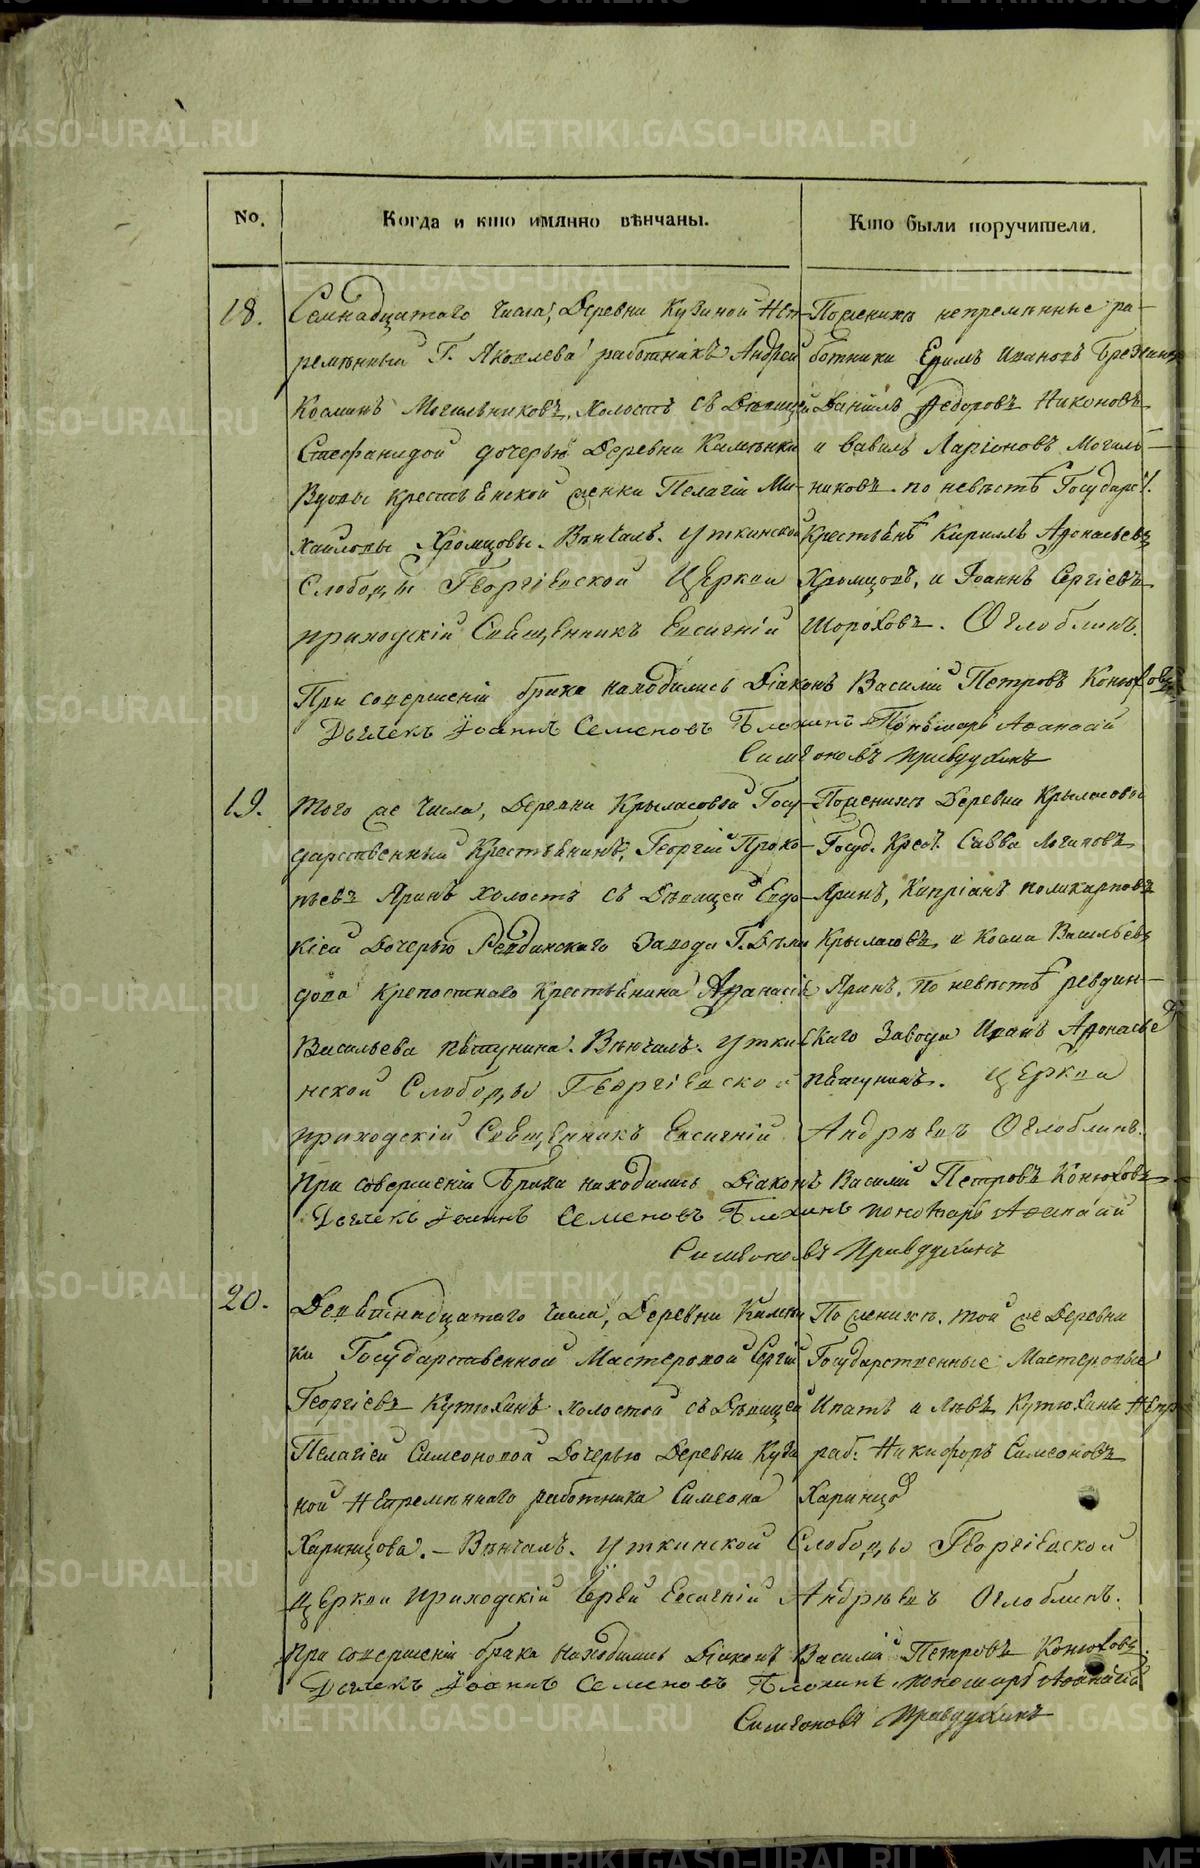 No.
Когда и кто имянно вѣнчаны.
Кто были поручители.
18.
Семнадцатаго числа, Деревни Кузиной Неп-
ремѣнный Г. Яковлева работникъ Андрей
Косминъ Могильниковъ, холостъ съ Дѣвицей
Стефанидой дочерью Деревни Каменки
Вдовы крестьянской женки Пелагіи Ми-
хаиловы Хромцовы. Вѣнчалъ. Уткинской
Слободы Георгіевской Церкви
приходскій Священникъ Евсигній
По женихѣ непремѣнные ра-
ботники Ефимъ Ивановъ
Даніилъ Федоровъ Никоновъ
и Вавилъ Ларіоновъ Могиль-
никовъ по невѣстѣ Государ.
Крестьянѣ Кириллъ Афонасьевъ
Хромцовъ, и Іоаннъ Сергіевъ
Шороховъ. Оглоблинъ.
При совершеніи брака находились Діаконъ Василій Петровъ Конюховъ
Дьячекъ Іоаннъ Семеновъ Блохинъ Пономарь Афанасій
Симеоновъ Правдухинъ
19.
Того же числа, Деревни Крыласовой Госу-
дарственный Крестьянинъ, Георгій Проко-
пьевъ Яринъ холостъ съ Дѣвицей Евдо-
кіей Дочерью Ревдинскаго Завода Г. Деми
дова крепостнаго Крестьянина Афанасія
Васильева Пѣтунина. Вѣнчалъ. Утки
нской Слободы Георгіевской
приходскій Священникъ Евсигній
По женихѣ Деревни Крыласовой
Госуд. Крест. Савва Логиновъ
Яринъ, Кипріанъ Поликарповъ
Крыласовъ, и Косма Васильевъ
Яринъ. По невѣстѣ ревдин-
скаго Завода Иванъ Афонасье
Пѣтунинъ. Церкви
Андрѣевъ Оглоблинъ.
При совершеніи Брака находились Діаконъ Василій Петровъ Конюховъ
Дьячекъ Іоаннъ Семеновъ Блохинъ пономарь Афанасій
Симеоновъ Правдухинъ
20.
Девятнадцатаго числа, Деревни Камен
ки Государственной Мастеровой Сергій
Георгіевъ Кутюхинъ холостой съ Дѣвицей
Пелагіей Симеоновой Дочерью Деревни Кузи
ной Непремѣннаго работника Симеона
Харинцова. – Вѣнчалъ. Уткинской Слободы Георгіевской
Церкви приходскій Іерей Евсигній Андрѣевъ Оглоблинъ.
По женихѣ. той же Деревни
Государственные Мастеровые
Ипатъ и Левъ Кутюхины Непр
раб. Никифоръ Симеоновъ
Харинцо
При совершеніи брака находились Діаконъ Василій Петровъ Конюховъ
Дьячекъ Іоаннъ Семеновъ Блохинъ пономарь Афанасій
Симеоновъ Правдухинъ
METRIKI.GASO-URAL.RU